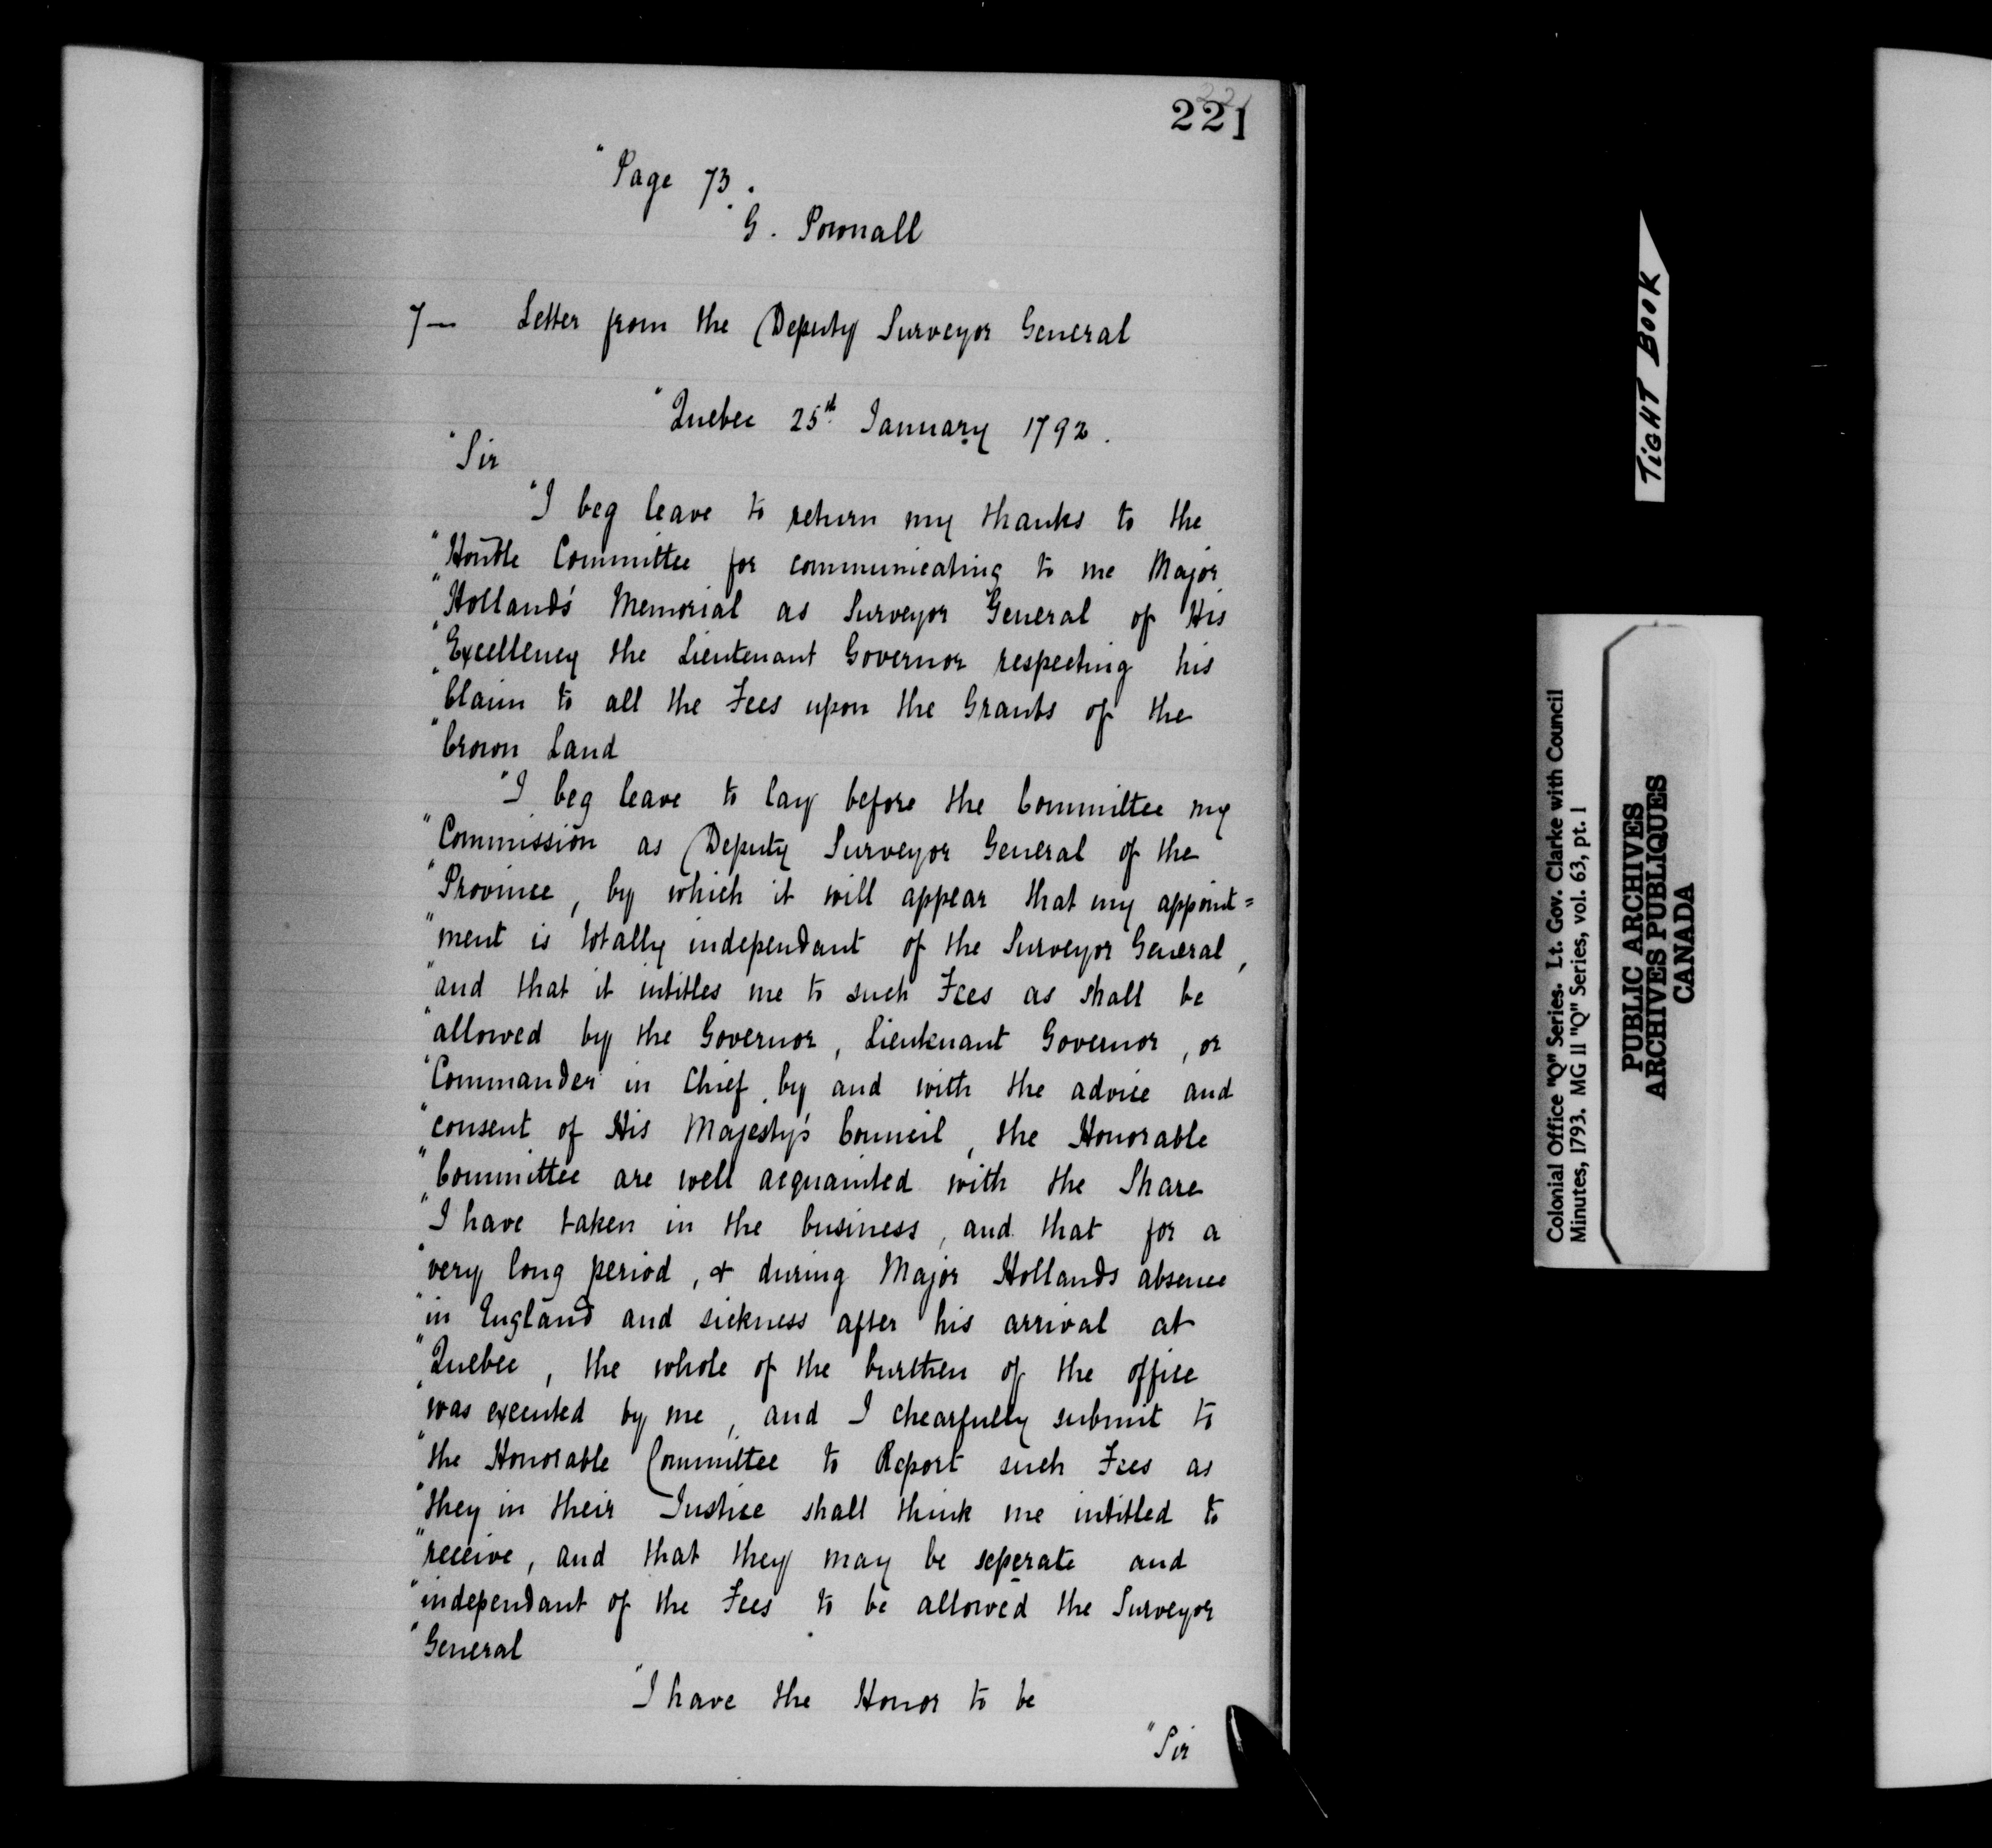 221
221
"Page 73.
"G. Pownall
7— Letter from the Deputy Surveyor General
"Quebec 25th January 1792.
"Sir
"I beg leave to return my thanks to the
"Honble Committee for communicating to me Major
"Holland's Memorial as Surveyor General of His
"Excellency the Lieutenant Governor respecting his
"Claim to all the Fees upon the Grants of the
"Crown Land
"I beg leave to lay before the Committee my
"Commission as Deputy Surveyor General of the
"Province, by which it will appear that my appoint=
"ment is totally independant of the Surveyor General,
"and that it intitles me to such Fees as shall be
"allowed by the Governor, Lieutenant Governor, or
"Commander in Chief, by and with the advice and
"consent of His Majesty's Council, the Honorable
"Committee are well acquainted with the Share
"I have taken in the business, and that for a
"very long period, & during Major Hollands absence
"in England and sickness after his arrival at
"Quebec, the whole of the burthen of the office
"was executed by me, and I chearfully submit to
"the Honorable Committee to Report such Fees as
"they in their Justice shall think me intitled to
"receive, and that they may be seperate and
"independant of the Fees to be allowed the Surveyor
"General
"I have the Honor to be
"Sir
TIGHT BOOK
Colonial Office "Q" Series. Lt. Gov. Clarke with Council
Minutes, 1793. MG 11 "Q" Series, vol. 63, pt. 1
PUBLIC ARCHIVES
ARCHIVES PUBLIQUES
CANADA